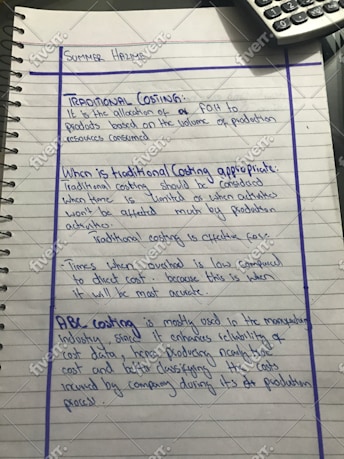 SUMMER HAZIME
TRADITIONAL COSTING:
It is the allocation of FOH to
products based on the volume of production
resources consumed
When is traditional Costing appropriate:
Traditional costing should be considered
when time is limited or when activities
won't be affected much by production
activities.
Traditional costing is effective for:
- Times when overhead is low compared
to direct cost. because this is when
it will be most accurate.
ABC costing is mostly used in the manufacturing
Industry, since it enhances reliability of
cost data, hence producing nearly true
cost and better classifying the costs
incurred by company during its production
process.
fiverr.